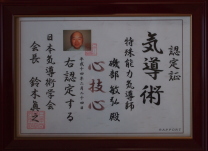 認定証
気導術
特殊能力気導師
磯部敏弘殿
心技心
右認定する
日本気導術学会
会長 鈴木眞之